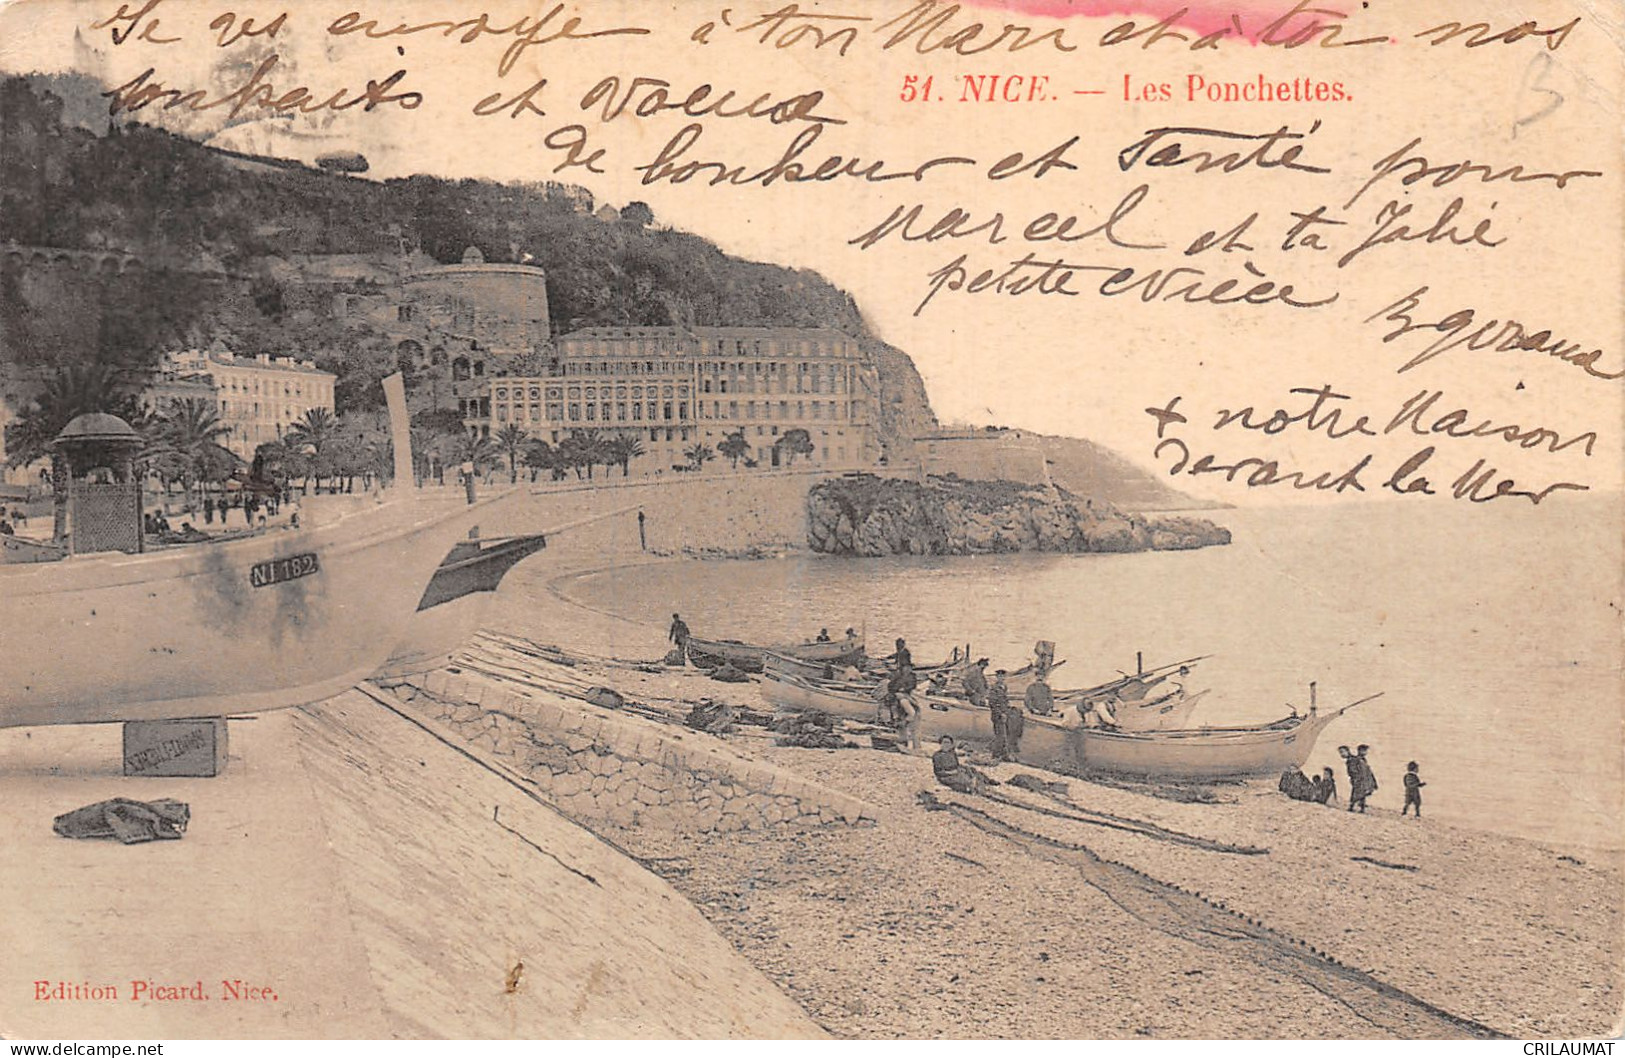 Je ges envoye à ton Mari et à toi nos
souhaits et voeux
51. NICE. — Les Ponchettes.
B
de bonheur et Santé pour
Marcel et ta Jolie
petite Nièce
+ notre Maison
devant la Mer
NI 182
Edition Picard. Nice.
CRILAUMAT